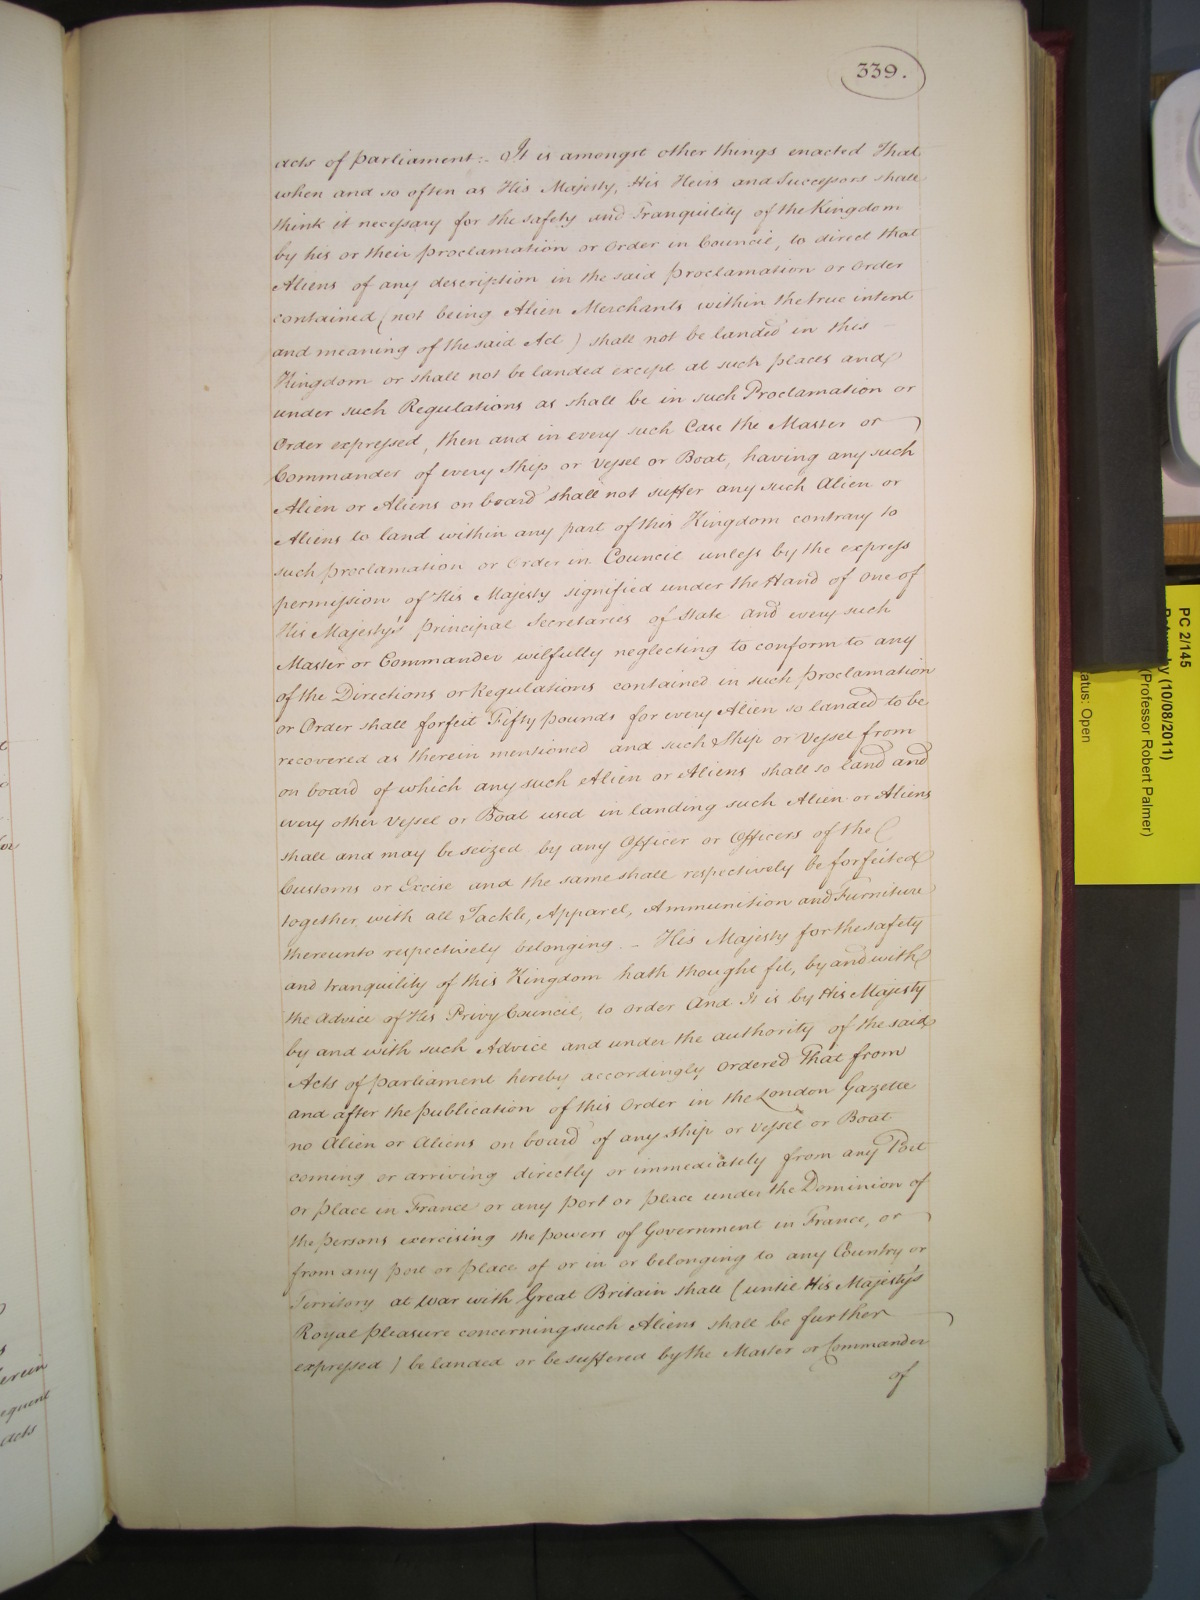 339.
acts of parliament:- It is amongst other things enacted That
when and so often as His Majesty, His Heirs and Successors shall
think it necessary for the safety and Tranquility of the Kingdom
by his or their proclamation or Order in Council, to direct that
Aliens of any description in the said proclamation or Order
contained (not being Alien Merchants within the true intent
and meaning of the said Act) shall not be landed in this
Kingdom or shall not be landed except at such places and
under such Regulations as shall be in such Proclamation or
Order expressed, then and in every such Case the Master or
Commander of every Ship or Vessel or Boat, having any such
Alien or Aliens on board shall not suffer any such Alien or
Aliens to land within any part of this Kingdom contrary to
such proclamation or Order in Council unless by the express
permission of His Majesty signified under the Hand of one of
His Majesty's principal Secretaries of State and every such
Master or Commander wilfully neglecting to conform to any
of the Directions or Regulations contained in such proclamation
or Order shall forfeit Fifty pounds for every Alien so landed to be
recovered as therein mentioned and such Ship or Vessel from
on board of which any such Alien or Aliens shall so land and
every other Vessel or Boat used in landing such Alien or Aliens
shall and may be seized by any Officer or Officers of the
Customs or Excise and the same shall respectively be forfeited
together with all Tackle, Apparel, Ammunition and Furniture
thereunto respectively belonging. - His Majesty for the safety
and tranquility of this Kingdom hath thought fit, by and with
the advice of His Privy Council, to order And It is by His Majesty
by and with such Advice and under the authority of the said
Acts of parliament hereby accordingly ordered That from
and after the publication of this Order in the London Gazette
no Alien or Aliens on board of any Ship or Vessel or Boat
coming or arriving directly or immediately from any Port
or place in France or any port or place under the Dominion of
the persons exercising the powers of Government in France, or
from any port or place of or in or belonging to any Country or
Territory at war with Great Britain shall (until His Majesty's
Royal pleasure concerning such Aliens shall be further
expressed) be landed or be suffered by the Master or Commander
of
PC 2/145
(10/08/2011)
(Professor Robert Palmer)
atus: Open
erein
equent
acts